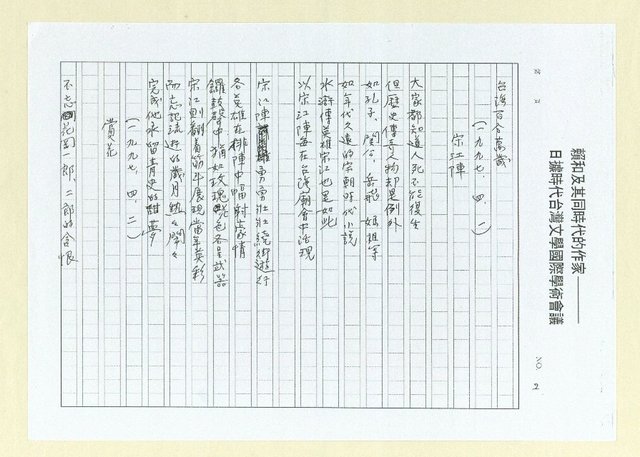 賴和及其同時代的作家
日據時代台灣文學國際學術會議
NO. 2
台灣百合萬歲
（一九九七．四．一）
宋江陣
大家都知道人死不能復生
但歷史傳奇人物却是例外
如孔子、関公、岳飛、媽祖等
如年代久遠的宋朝時代小說
水滸傳英雄宋江也是如此
以宋江陣每在台灣廟會中活現
宋江陣勇勇壯壯繞街遊行
各英雄在排陣中幅射豪情
鑼鼓聲中猶如玫瑰 色各呈武器
宋江則翻着筋斗展現當年英彩
而忘記流逝的歲月悠々開々
完成他永留青史的甜夢
（一九九七．四．二）
賞花
不忘花岡一郎、二郎的含恨